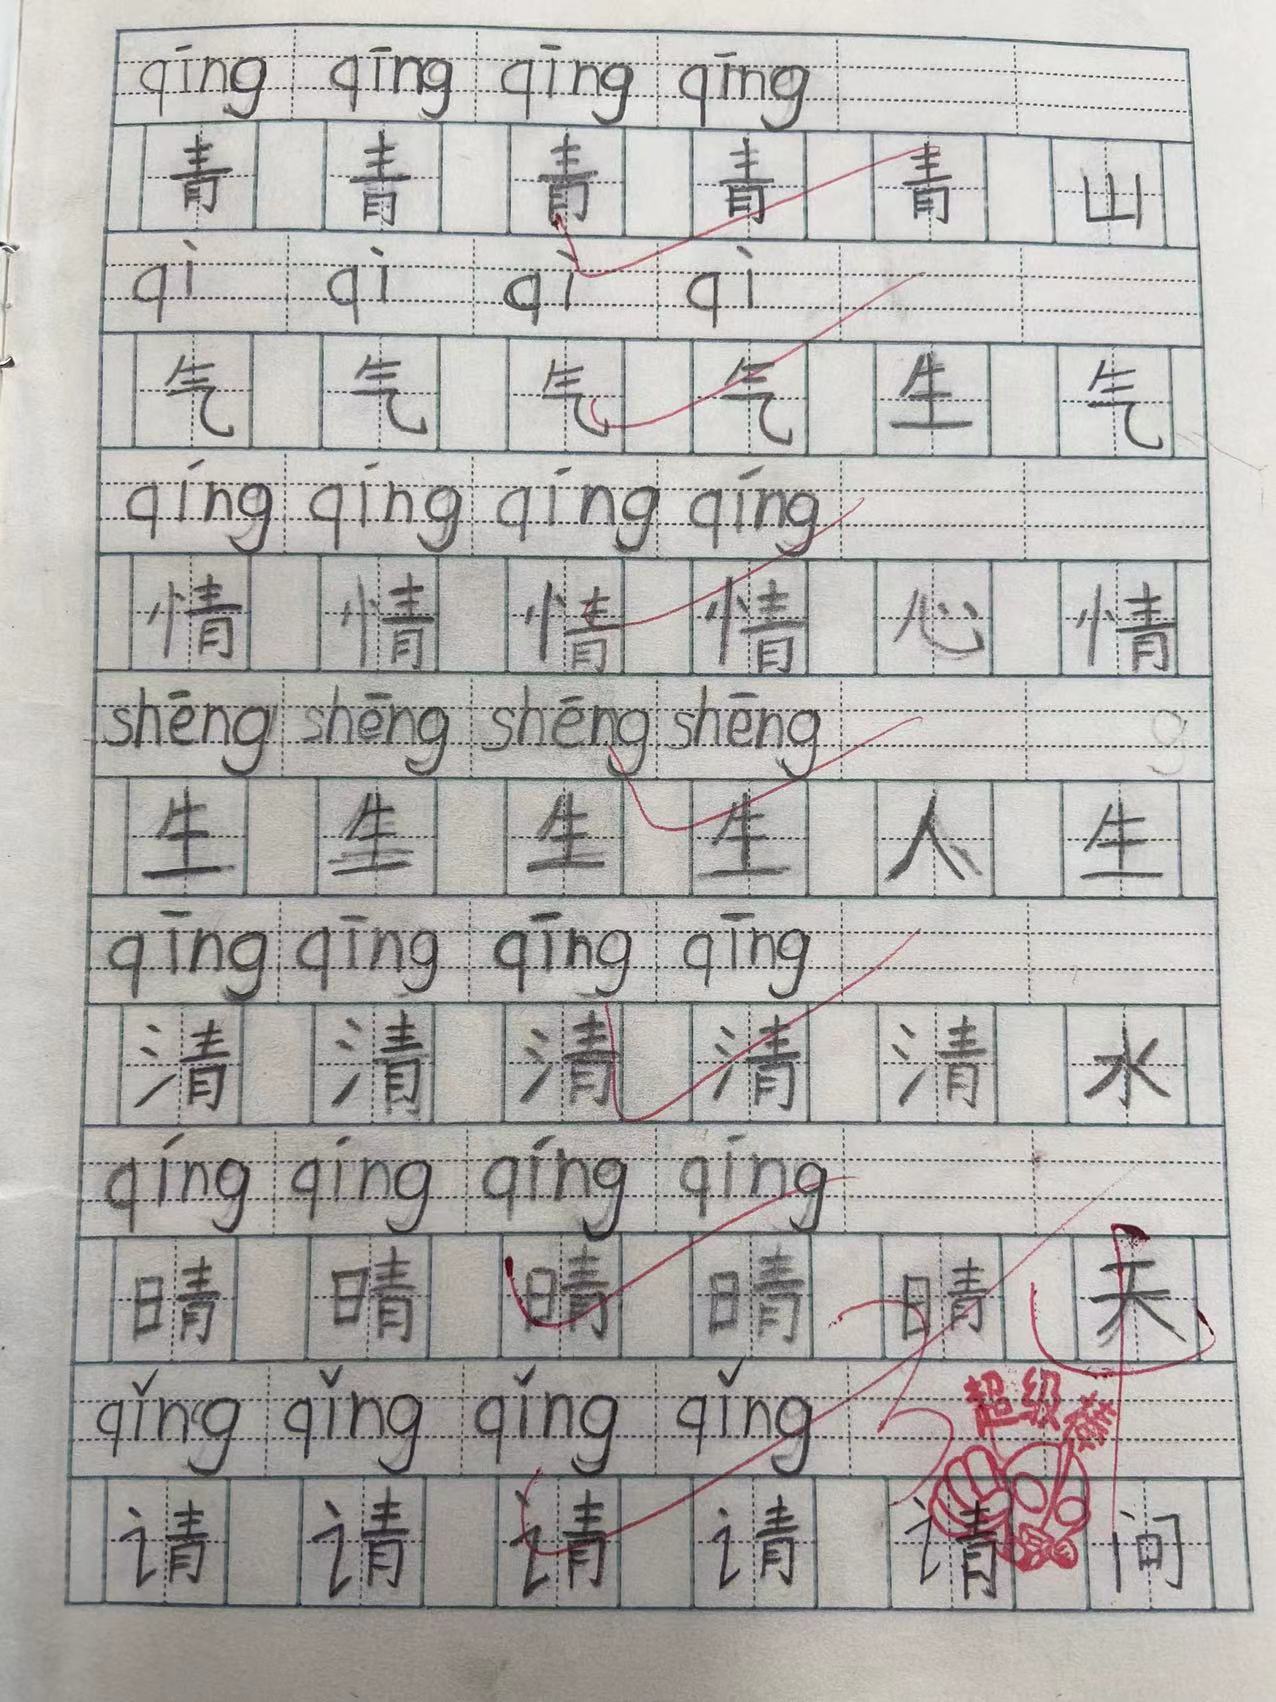 qīng qīng qīng qīng
青 青 青 青 青 山
qì qì qì qì
气 气 气 气 生 气
qíng qíng qíng qíng
情 情 情 情 心 情
shēng shēng shēng shēng g
生 生 生 生 人 生
qīng qīng qīng qīng
清 清 清 清 清 水
qíng qíng qíng qíng
晴 晴 晴 晴 晴 天
qǐng qǐng qǐng qǐng
超级棒
请 请 请 请 请 问